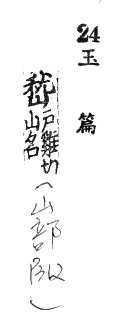 24 玉篇
嵇 戶雞切山名 (山部 )